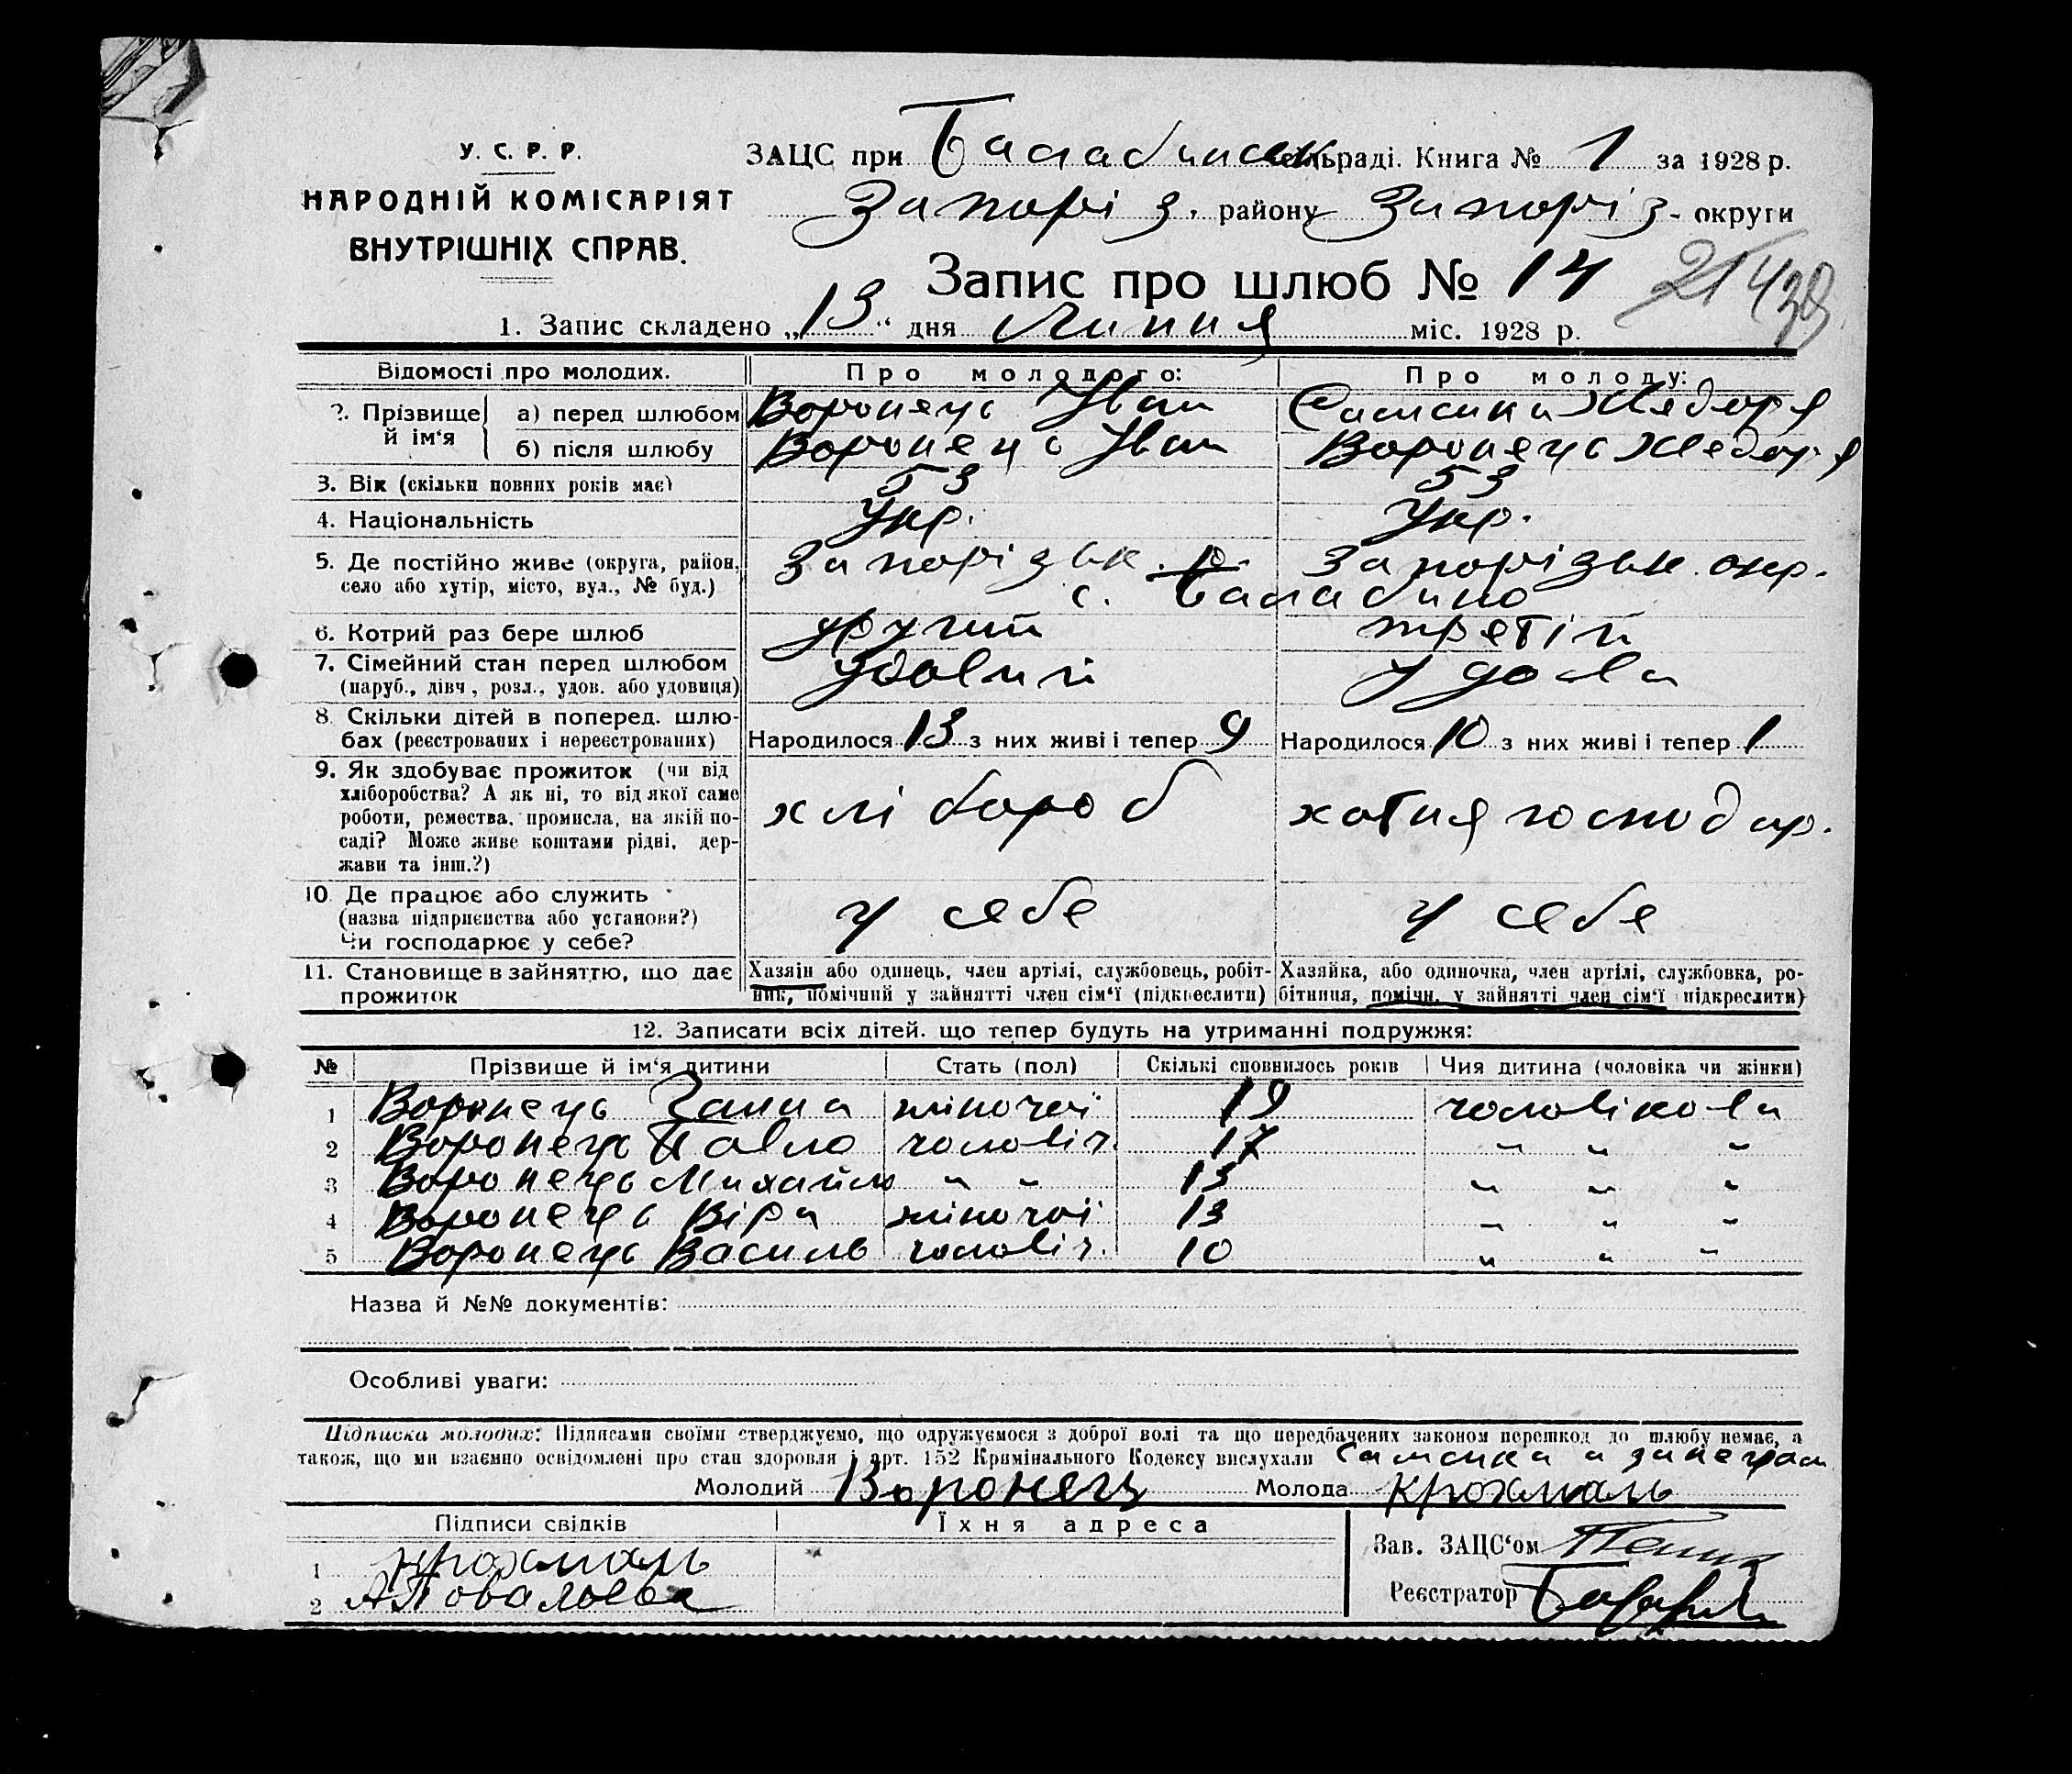 У. С. Р. Р.
НАРОДНІЙ КОМІСАРІЯТ
ВНУТРІШНІХ СПРАВ.
ЗАЦС при Балабинськ сельраді. Книга № 1 за 1928 р.
Запоріз. району Запоріз- округи
Запис про шлюб № 14
1. Запис складено „13“ дня Липня міс. 1928 р.
Відомості про молодих. Про молодого: Про молоду:
2. Прізвище й ім‘я а) перед шлюбом Воронець Іван Самсика Хведоря
б) після шлюбу Воронець Іван Воронець Хведоря
3. Вік (скільки повних років має) 53 53
4. Національність Укр. Укр.
5. Де постійно живе (округа, район, Запорізьк. о. Запорізьк. окр.
село або хутір, місто, вул., № буд.) с. Балабино
6. Котрий раз бере шлюб другий третій
7. Сімейний стан перед шлюбом удовий удова
(паруб., дівч., розл., удов. або удовиця)
8. Скільки дітей в поперед. шлю-
бах (реєстрованих і нереєстрованих) Народилося 13 з них живі і тепер 9 Народилося 10 з них живі і тепер 1
9. Як здобуває прожиток (чи від
хліборобства? А як ні, то від якої саме
роботи, ремества, промисла, на якій по- хлібороб хатня господар.
саді? Може живе коштами рідні, дер-
жави та інш.?)
10. Де працює або служить
(назва підприємства або установи?) у себе у себе
Чи господарює у себе?
11. Становище в зайняттю, що дає Хазяін або одинець, член артілі, службовець, робіт- Хазяйка, або одиночка, член артілі, службовка, ро-
прожиток ник, помічний у зайнятті член сім‘ї (підкреслити) бітниця, помічн. у зайнятті член сім‘ї (підкреслити)
12. Записати всіх дітей. що тепер будуть на утриманні подружжя:
№ Прізвище й ім‘я дитини Стать (пол) Скількі сповнилось років Чия дитина (чоловіка чи жінки)
1 Воронець Ганна жіночої 19 чоловікова
2 Воронець Павло чоловіч. 17 „ „ „
3 Воронець Михайло „ „ 13 „ „ „
4 Воронець Віра жіночої 13 „ „ „
5 Воронець Василь чоловіч. 10 „ „ „
Назва й №№ документів:
Особливі уваги:
Підписка молодих: Підписами своїми стверджуємо, що одружуємося з доброї волі та що передбачених законом перешкод до шлюбу немає, а
також, що ми взаємно освідомлені про стан здоровля і арт. 152 Кримінального Кодексу вислухали Самсика а за неграм
Молодий Воронец Молода Крохмаль
Підписи свідків Їхня адреса
Зав. ЗАЦС‘ом
1 Крохмаль
Реєстратор
2 А Повалоєва